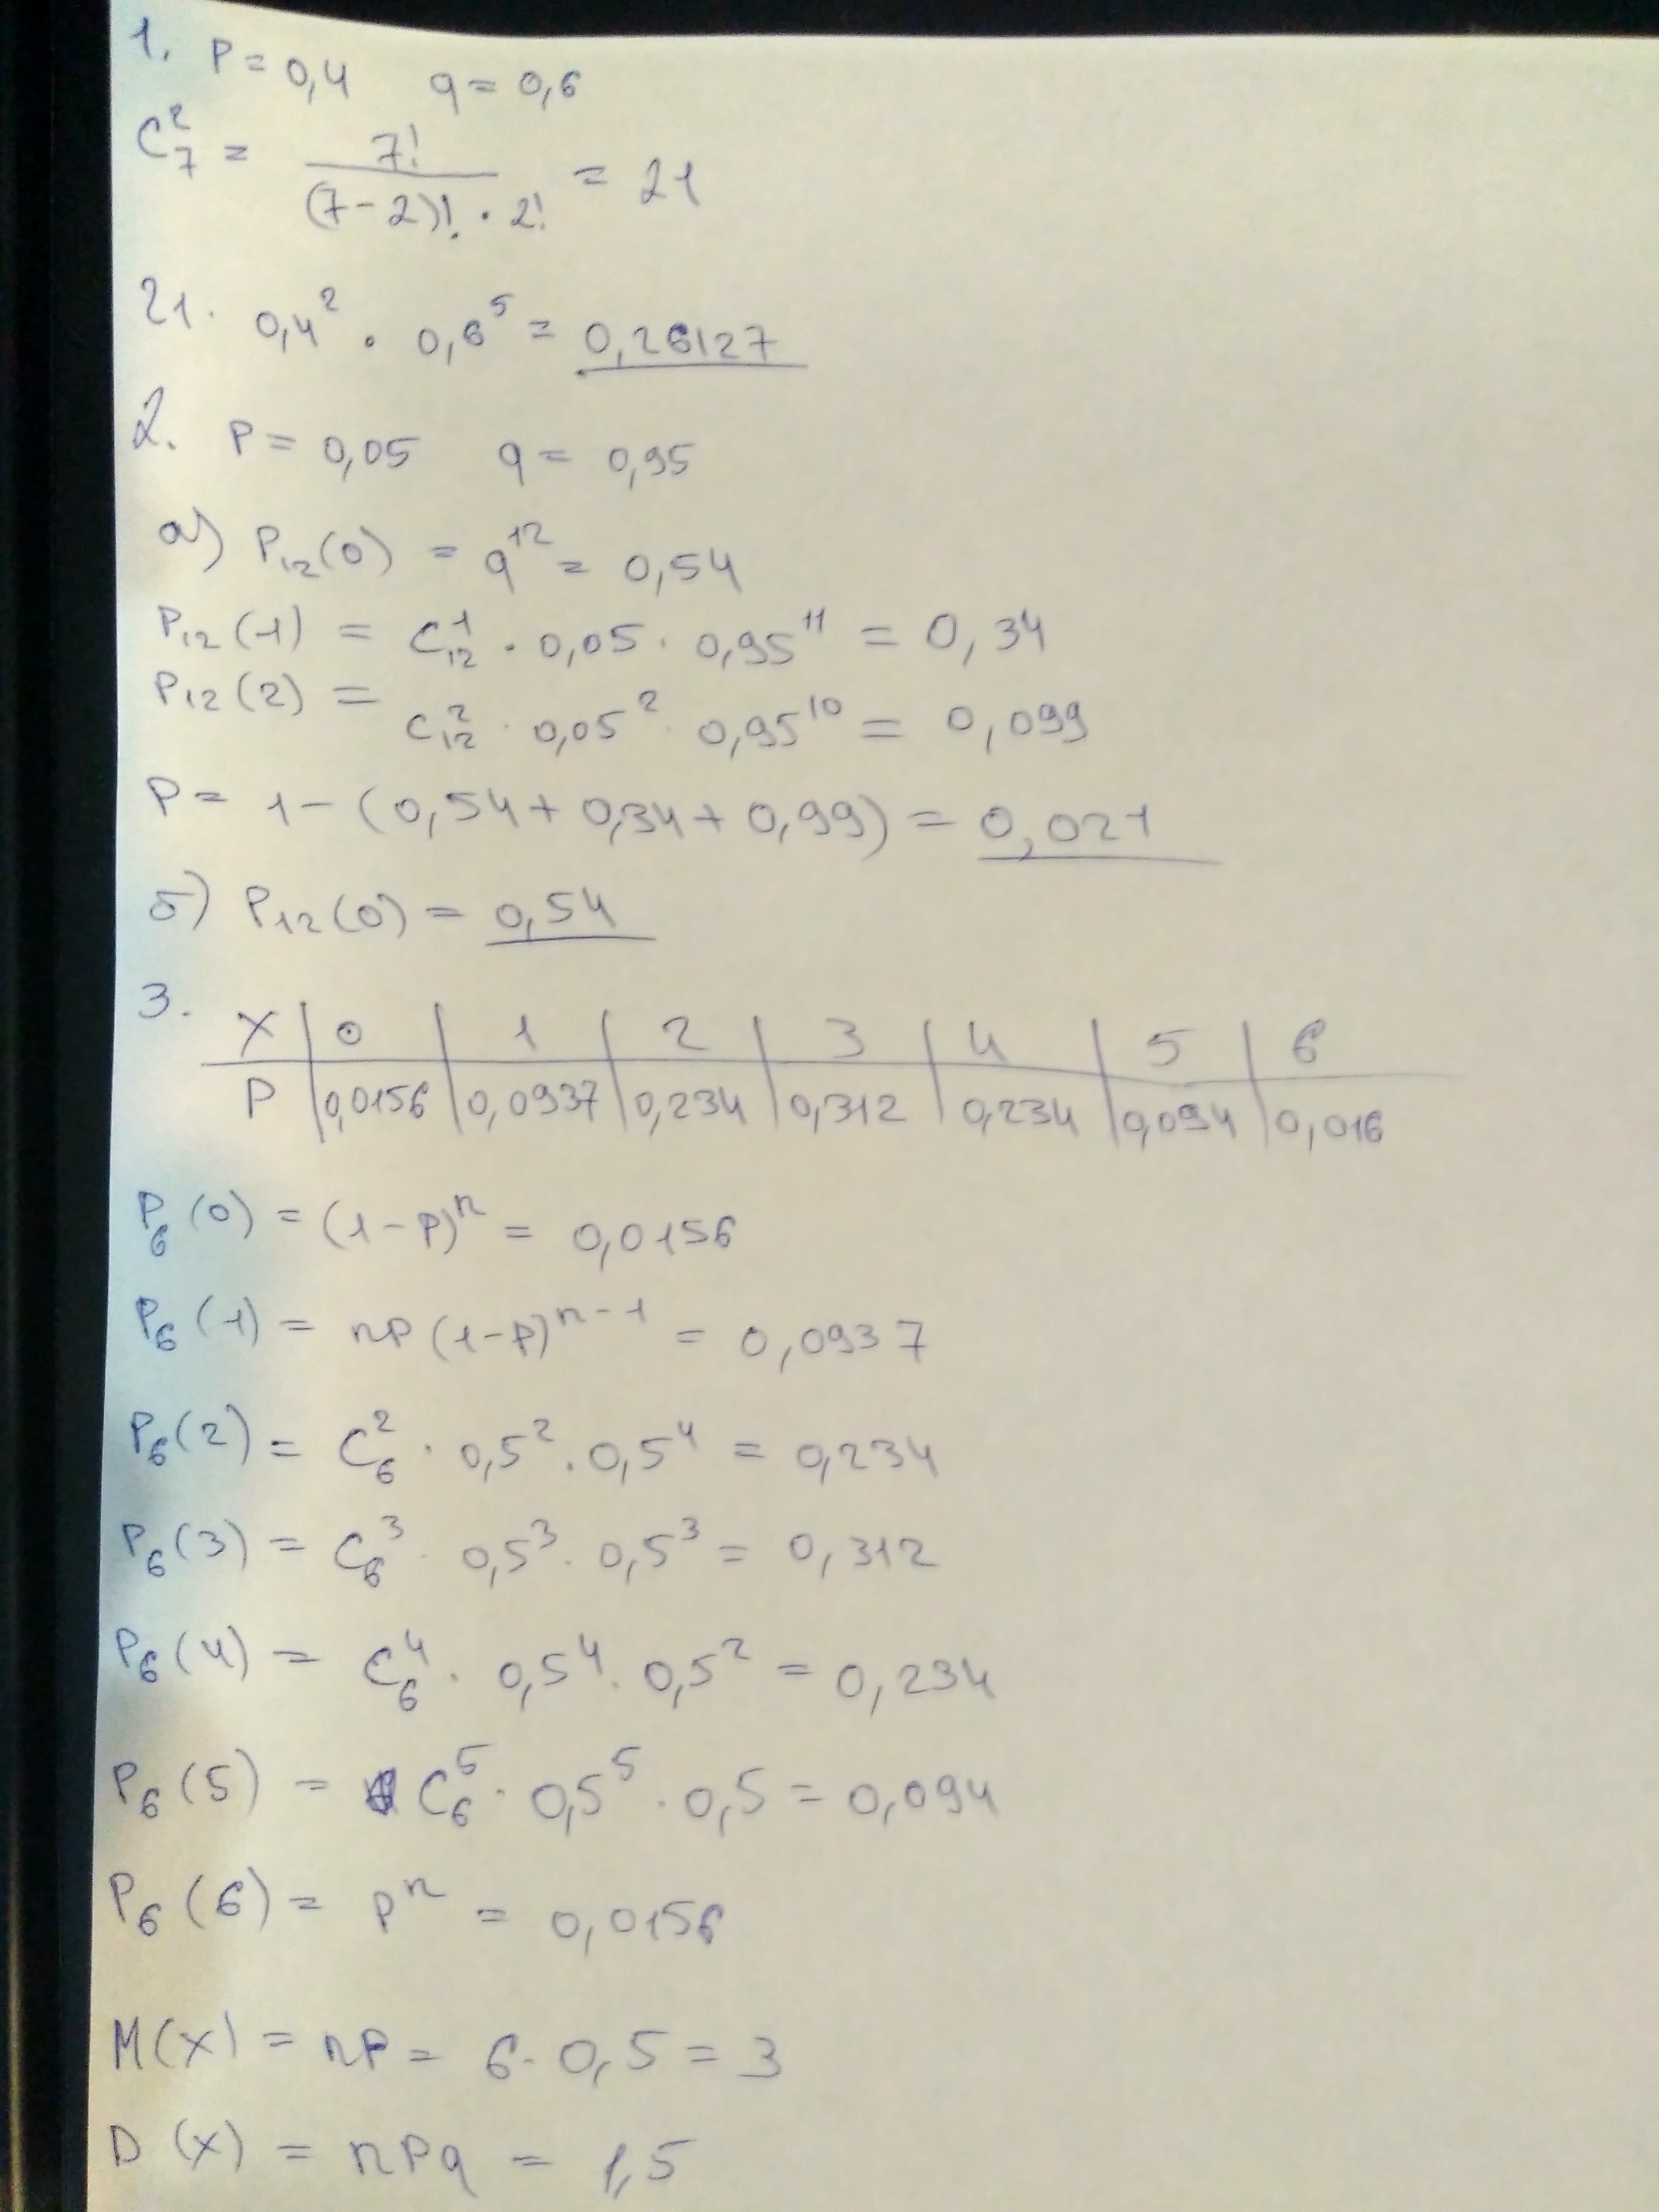 1. P = 0,4 q = 0,6
C₇² = 7! / (7-2)! · 2! = 21
21 · 0,4² · 0,6⁵ = 0,26127
2. P = 0,05 q = 0,95
а) P₁₂(0) = q¹² = 0,54
P₁₂(1) = C₁₂¹ · 0,05 · 0,95¹¹ = 0,34
P₁₂(2) = C₁₂² · 0,05² · 0,95¹⁰ = 0,099
P = 1 - (0,54 + 0,34 + 0,99) = 0,021
б) P₁₂(0) = 0,54
3. X | 0 | 1 | 2 | 3 | 4 | 5 | 6
P | 0,0156 | 0,0937 | 0,234 | 0,312 | 0,234 | 0,094 | 0,016
P₆(0) = (1-P)ⁿ = 0,0156
P₆(1) = nP(1-P)ⁿ⁻¹ = 0,0937
P₆(2) = C₆² · 0,5² · 0,5⁴ = 0,234
P₆(3) = C₆³ · 0,5³ · 0,5³ = 0,312
P₆(4) = C₆⁴ · 0,5⁴ · 0,5² = 0,234
P₆(5) = C₆⁵ · 0,5⁵ · 0,5 = 0,094
P₆(6) = Pⁿ = 0,0156
M(X) = nP = 6 · 0,5 = 3
D(X) = nPq = 1,5